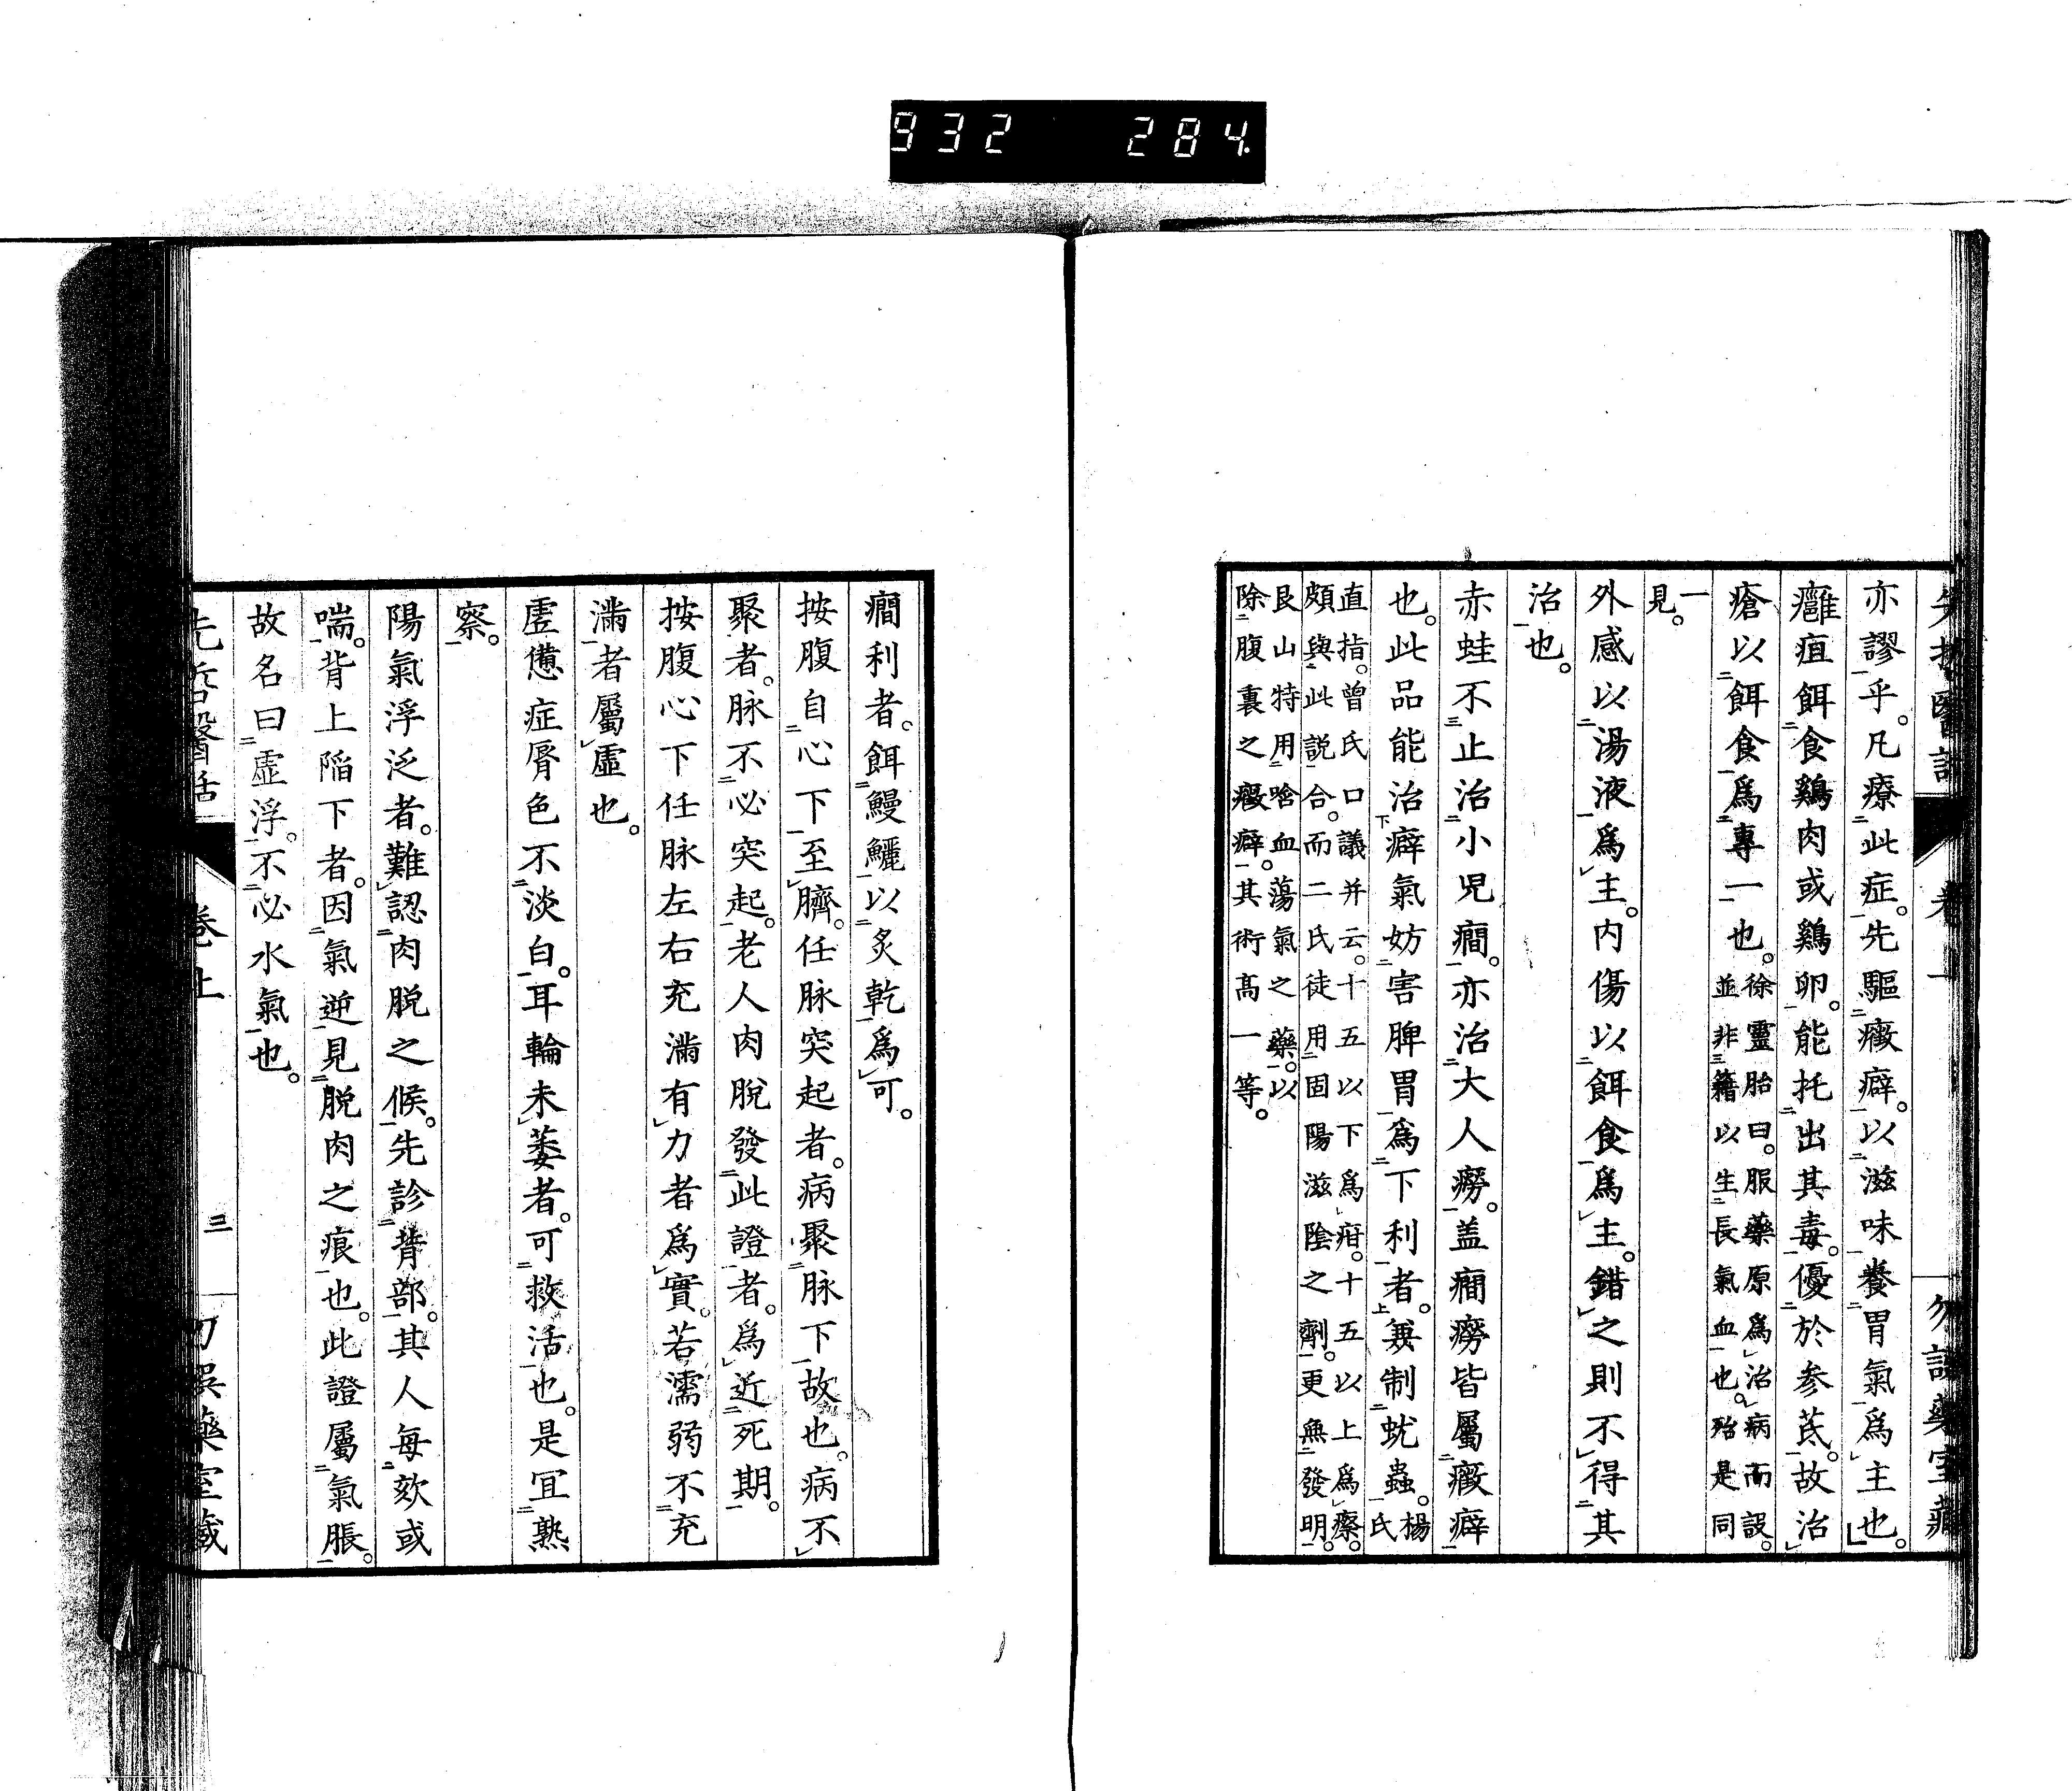 932 284
亦謬乎。凡療此症。先驅癥癖。以滋味養胃氣爲主也。
癰疽餌食鷄肉或鷄卵。能托出其毒。優於参芪。故治
瘡以餌食爲專一也。徐靈胎曰。服藥原爲治病而設。並非藉以生長氣血也。殆是同
一見。
外感以湯液爲主。内傷以餌食爲主。錯之則不得其
治也。
赤蛙不止治小児癇。亦治大人癆。盖癇癆皆屬癥癖
也。此品能治癖氣妨害脾胃爲下利者。兼制蚘蟲。楊氏
直指。曽氏口議并云。十五以下爲疳。十五以上爲瘵。頗與此説合。而二氏徒用固陽滋陰之劑。更無發明。
艮山特用啥血蕩氣之藥。以除腹裏之癥癖。其術髙一等。
癇利者。餌鰻鱺以炙乾爲可。
按腹自心下至臍。任脉突起者。病聚脉下故也。病不
聚者。脉不必突起。老人肉脱發此證者。爲近死期。
按腹心下任脉左右充滿有力者爲實。若濡弱不充
滿者屬虛也。
虛憊症脣色不淡白。耳輪未萎者。可救活也。是冝熟
察。
陽氣浮泛者。難認肉脱之候。先診背部。其人每欬或
喘。背上陥下者。因氣逆見脱肉之痕也。此證屬氣脹。
故名曰虛浮。不必水氣也。
先哲醫話 卷上 三 勿誤藥室藏